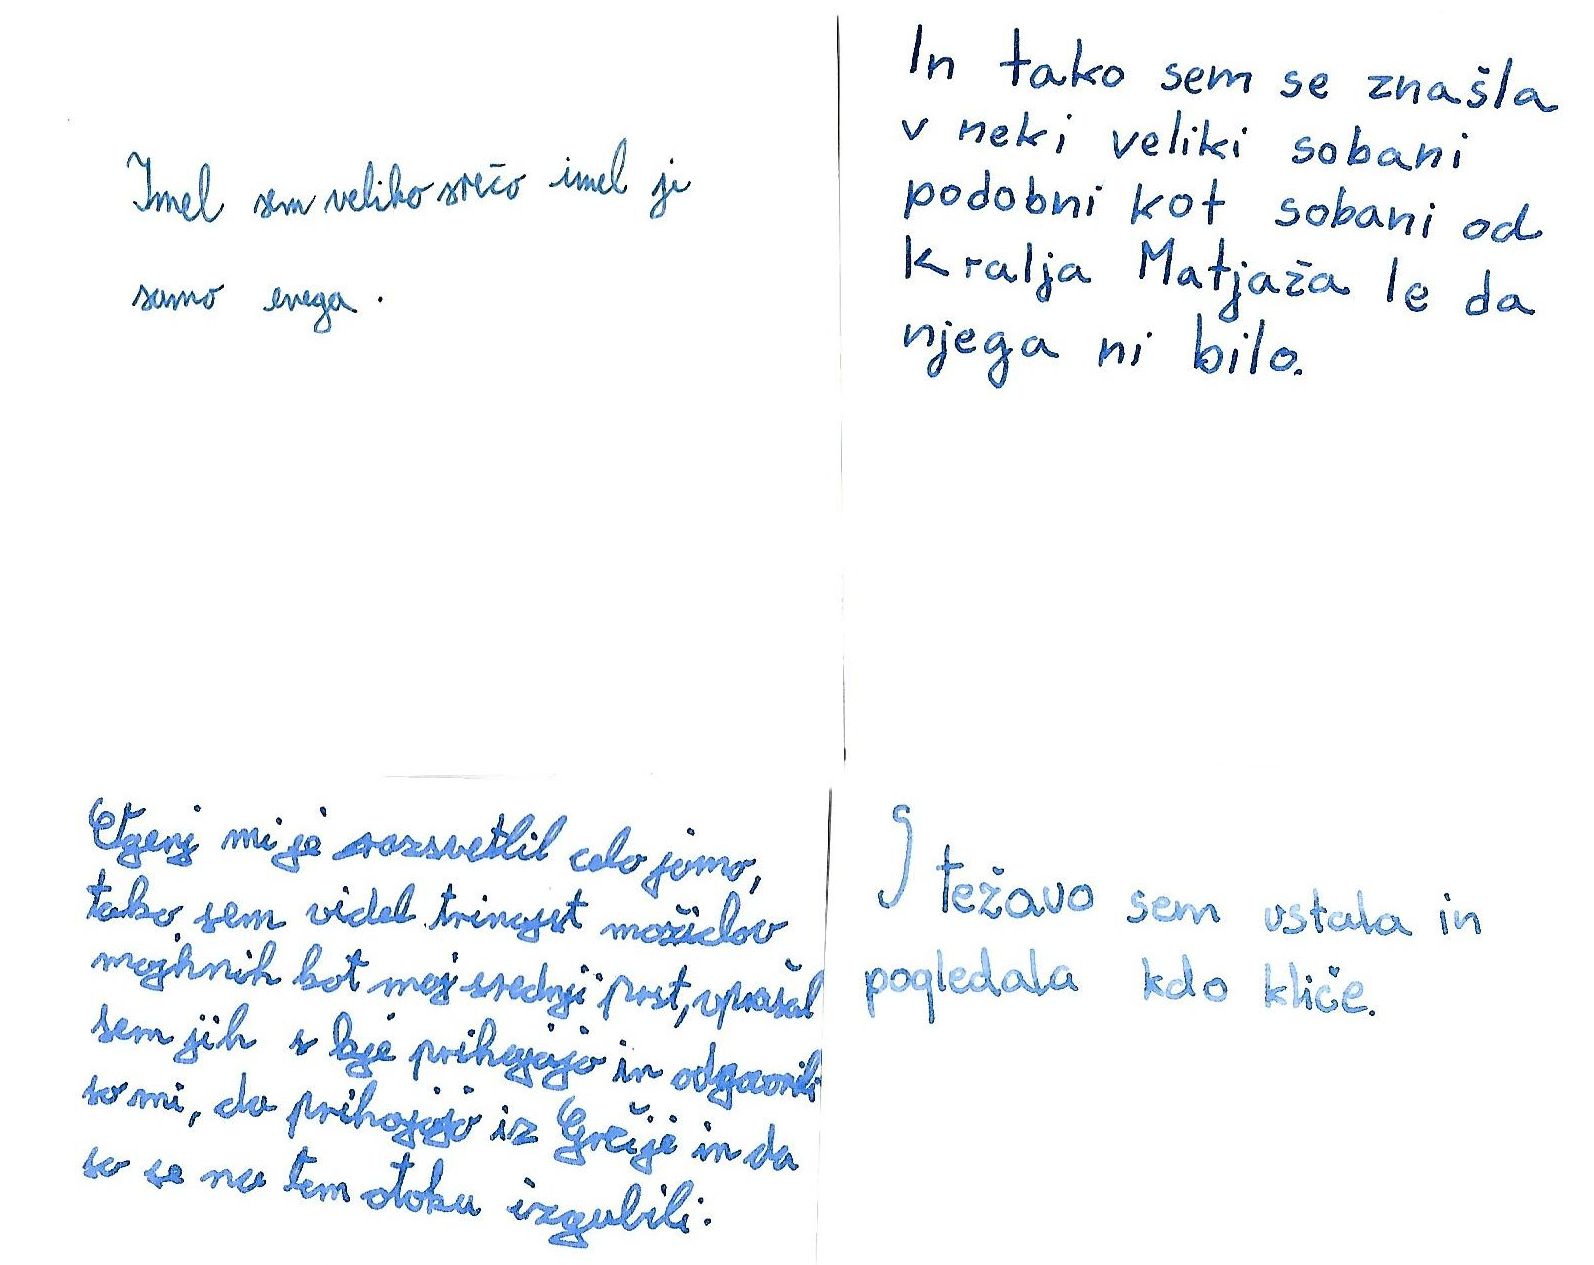 Imel sem veliko srečo imel je
samo enega.
In tako sem se znašla
v neki veliki sobani
podobni kot sobani od
kralja Matjaža le da
njega ni bilo.
Ogenj mi je razsvetlil celo jamo,
tako sem videl trinajst možiclov
majhnih kot moj srednji prst, vprašal
sem jih s kje prihajajo in odgovorili
so mi, da prihajajo iz Grčije in da
so se na tem otoku izgubili.
S težavo sem vstala in
pogledala kdo kliče.